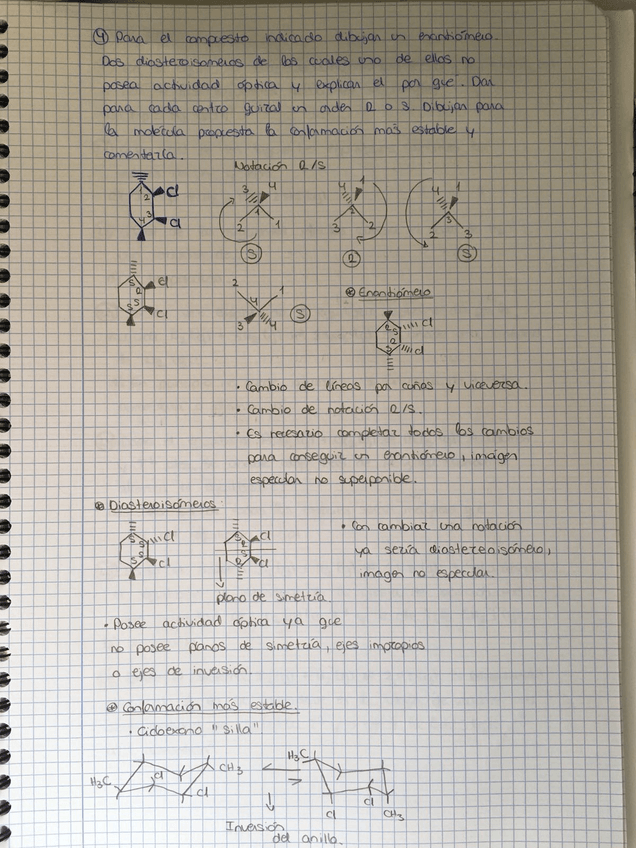 ④ Para el compuesto indicado dibujan un enantiómero.
Dos diasteroisómeros de los cuales uno de ellos no
posea actividad óptica y explican el por qué. Dar
para cada centro quiral un orden R o S. Dibujan para
la molécula propuesta la conformación más estable y
comentarla.
Notación R/S
1 2 3 4 Cl Cl
3 4 1 2 1 S
4 1 2 3 2 R
4 1 3 2 3 S
S R S S Cl Cl
2 1 4 3 4 S
⊕ Enantiómero
R S R S Cl Cl
• Cambio de líneas por cuñas y viceversa.
• Cambio de notación R/S.
• Es necesario completar todos los cambios
para conseguir un enantiómero, imagen
especular no superponible.
⊕ Diasteroisómeros
S S S S Cl Cl
S R S R Cl Cl
• Con cambiar una notación
ya sería diastereoisómero,
imagen no especular.
plano de simetría
• Posee actividad óptica ya que
no posee planos de simetría, ejes impropios
o ejes de inversión.
⊕ Conformación más estable.
• Cicloexano "silla"
H3C Cl CH3 Cl
H3C Cl Cl CH3
Inversión
del anillo.